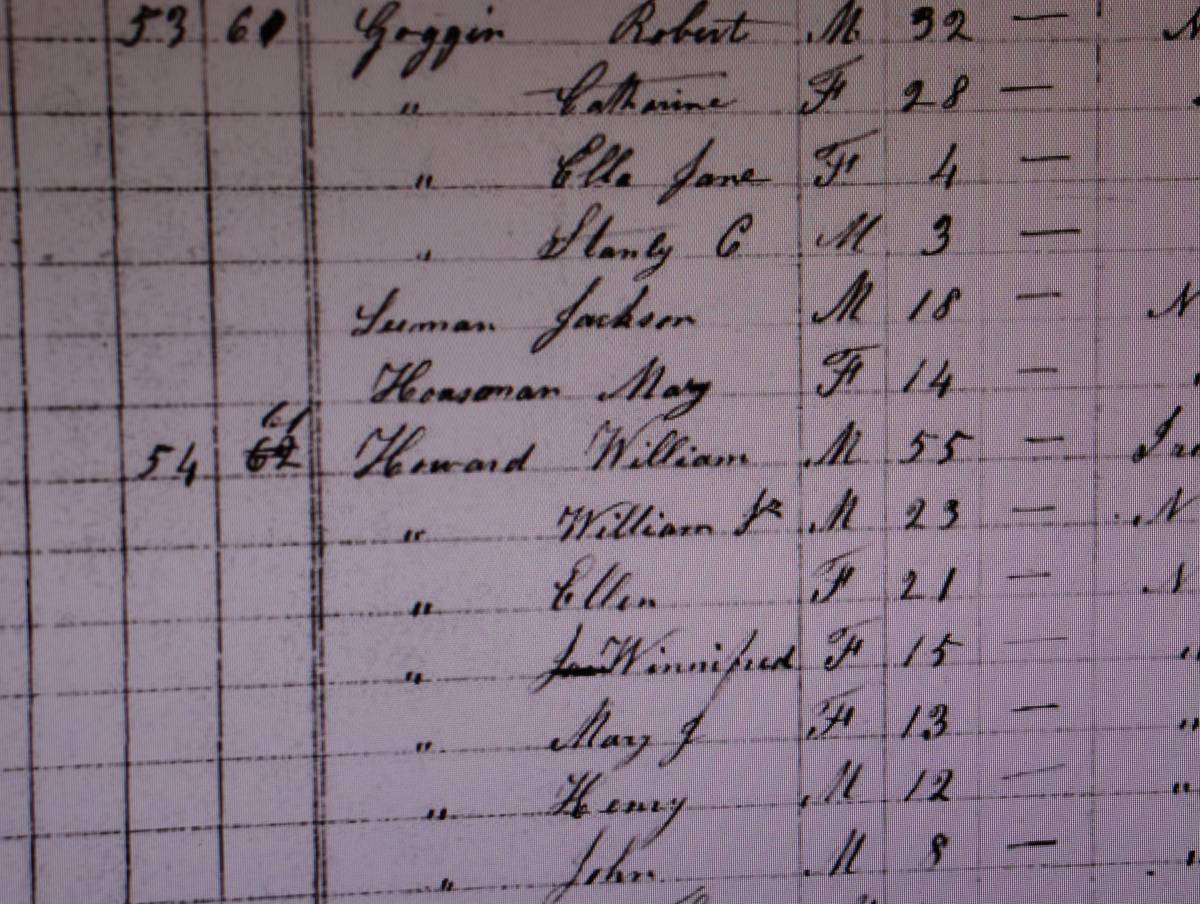 53 60 Goggin Robert M 32 — N
" Catharine F 28 —
" Ella Jane F 4 —
" Stanly C M 3 —
Suman Jackson M 18 — N
Houseman Mary F 14 —
61
54 62 Howard William M 55 —
" William Jr M 23 — N
" Ellen F 21 — N
" Winnifred F 15 — "
" Mary J F 13 — "
" Henry M 12 — "
" John M 8 — "